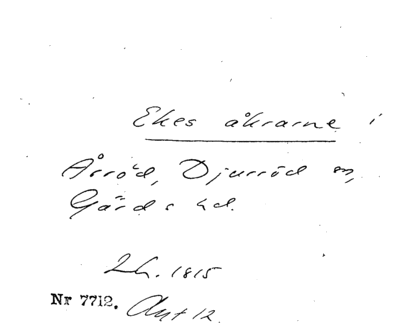 Ekes åkrarne i
Årröd, Djurröd sn,
Gärds hd.
Lh. 1815
Nr 7712. Akt 12.